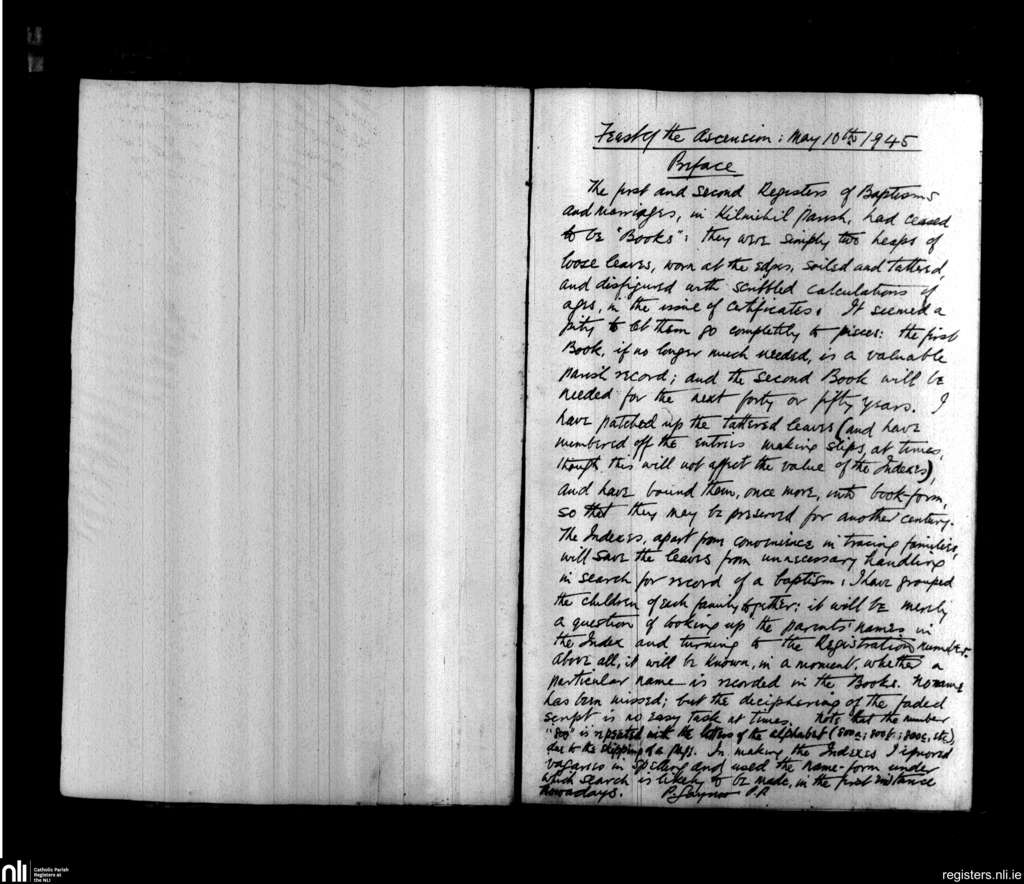 Feast of the Ascension: May 10th 1945
Preface
The first and second Registers of Baptisms
and marriages, in Kilmihil Parish, had ceased
to be "Books": they were simply two heaps of
loose leaves, worn at the edges, soiled and tattered,
and disfigured with scribbled calculations of
ages, in the issue of Certificates. It seemed a
pity to let them go completely to pieces: the first
Book, if no longer much needed, is a valuable
parish record; and the second Book will be
needed for the next forty or fifty years. I
have patched up the tattered leaves (and have
numbered off the entries making slips, at times,
though this will not affect the value of the Indexes),
and have bound them, once more, into book-form,
so that they may be preserved for another century.
The Indexes, apart from convenience in tracing families,
will save the leaves from unnecessary handling
in search for record of a baptism. I have grouped
the children of each family together: it will be merely
a question of looking up the parents' names in
the Index and turning to the Registration number.
Above all, it will be known, in a moment, whether a
particular name is recorded in the Books. No name
has been missed; but the deciphering of the faded
script is no easy task at times. Note that the number
"800" is repeated with the letters of the alphabet (800a; 800b; 800c, etc)
due to the skipping of a page. In making the Indexes I ignored
vagaries in spelling and used the name-form under
which search is likely to be made, in the first instance
nowadays. P. Gaynor P.P.
nli
Catholic Parish
Registers at
the NLI
registers.nli.ie